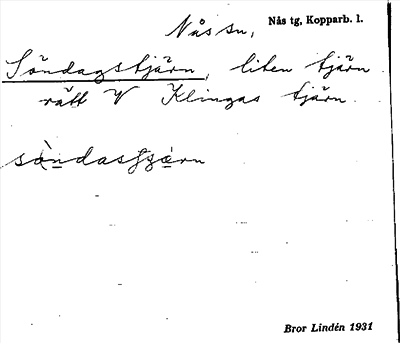 Nås sn, Nås tg, Kopparb. l.
Söndagstjärn, liten tjärn
rätt V Klingas tjärn.
Bror Lindén 1931